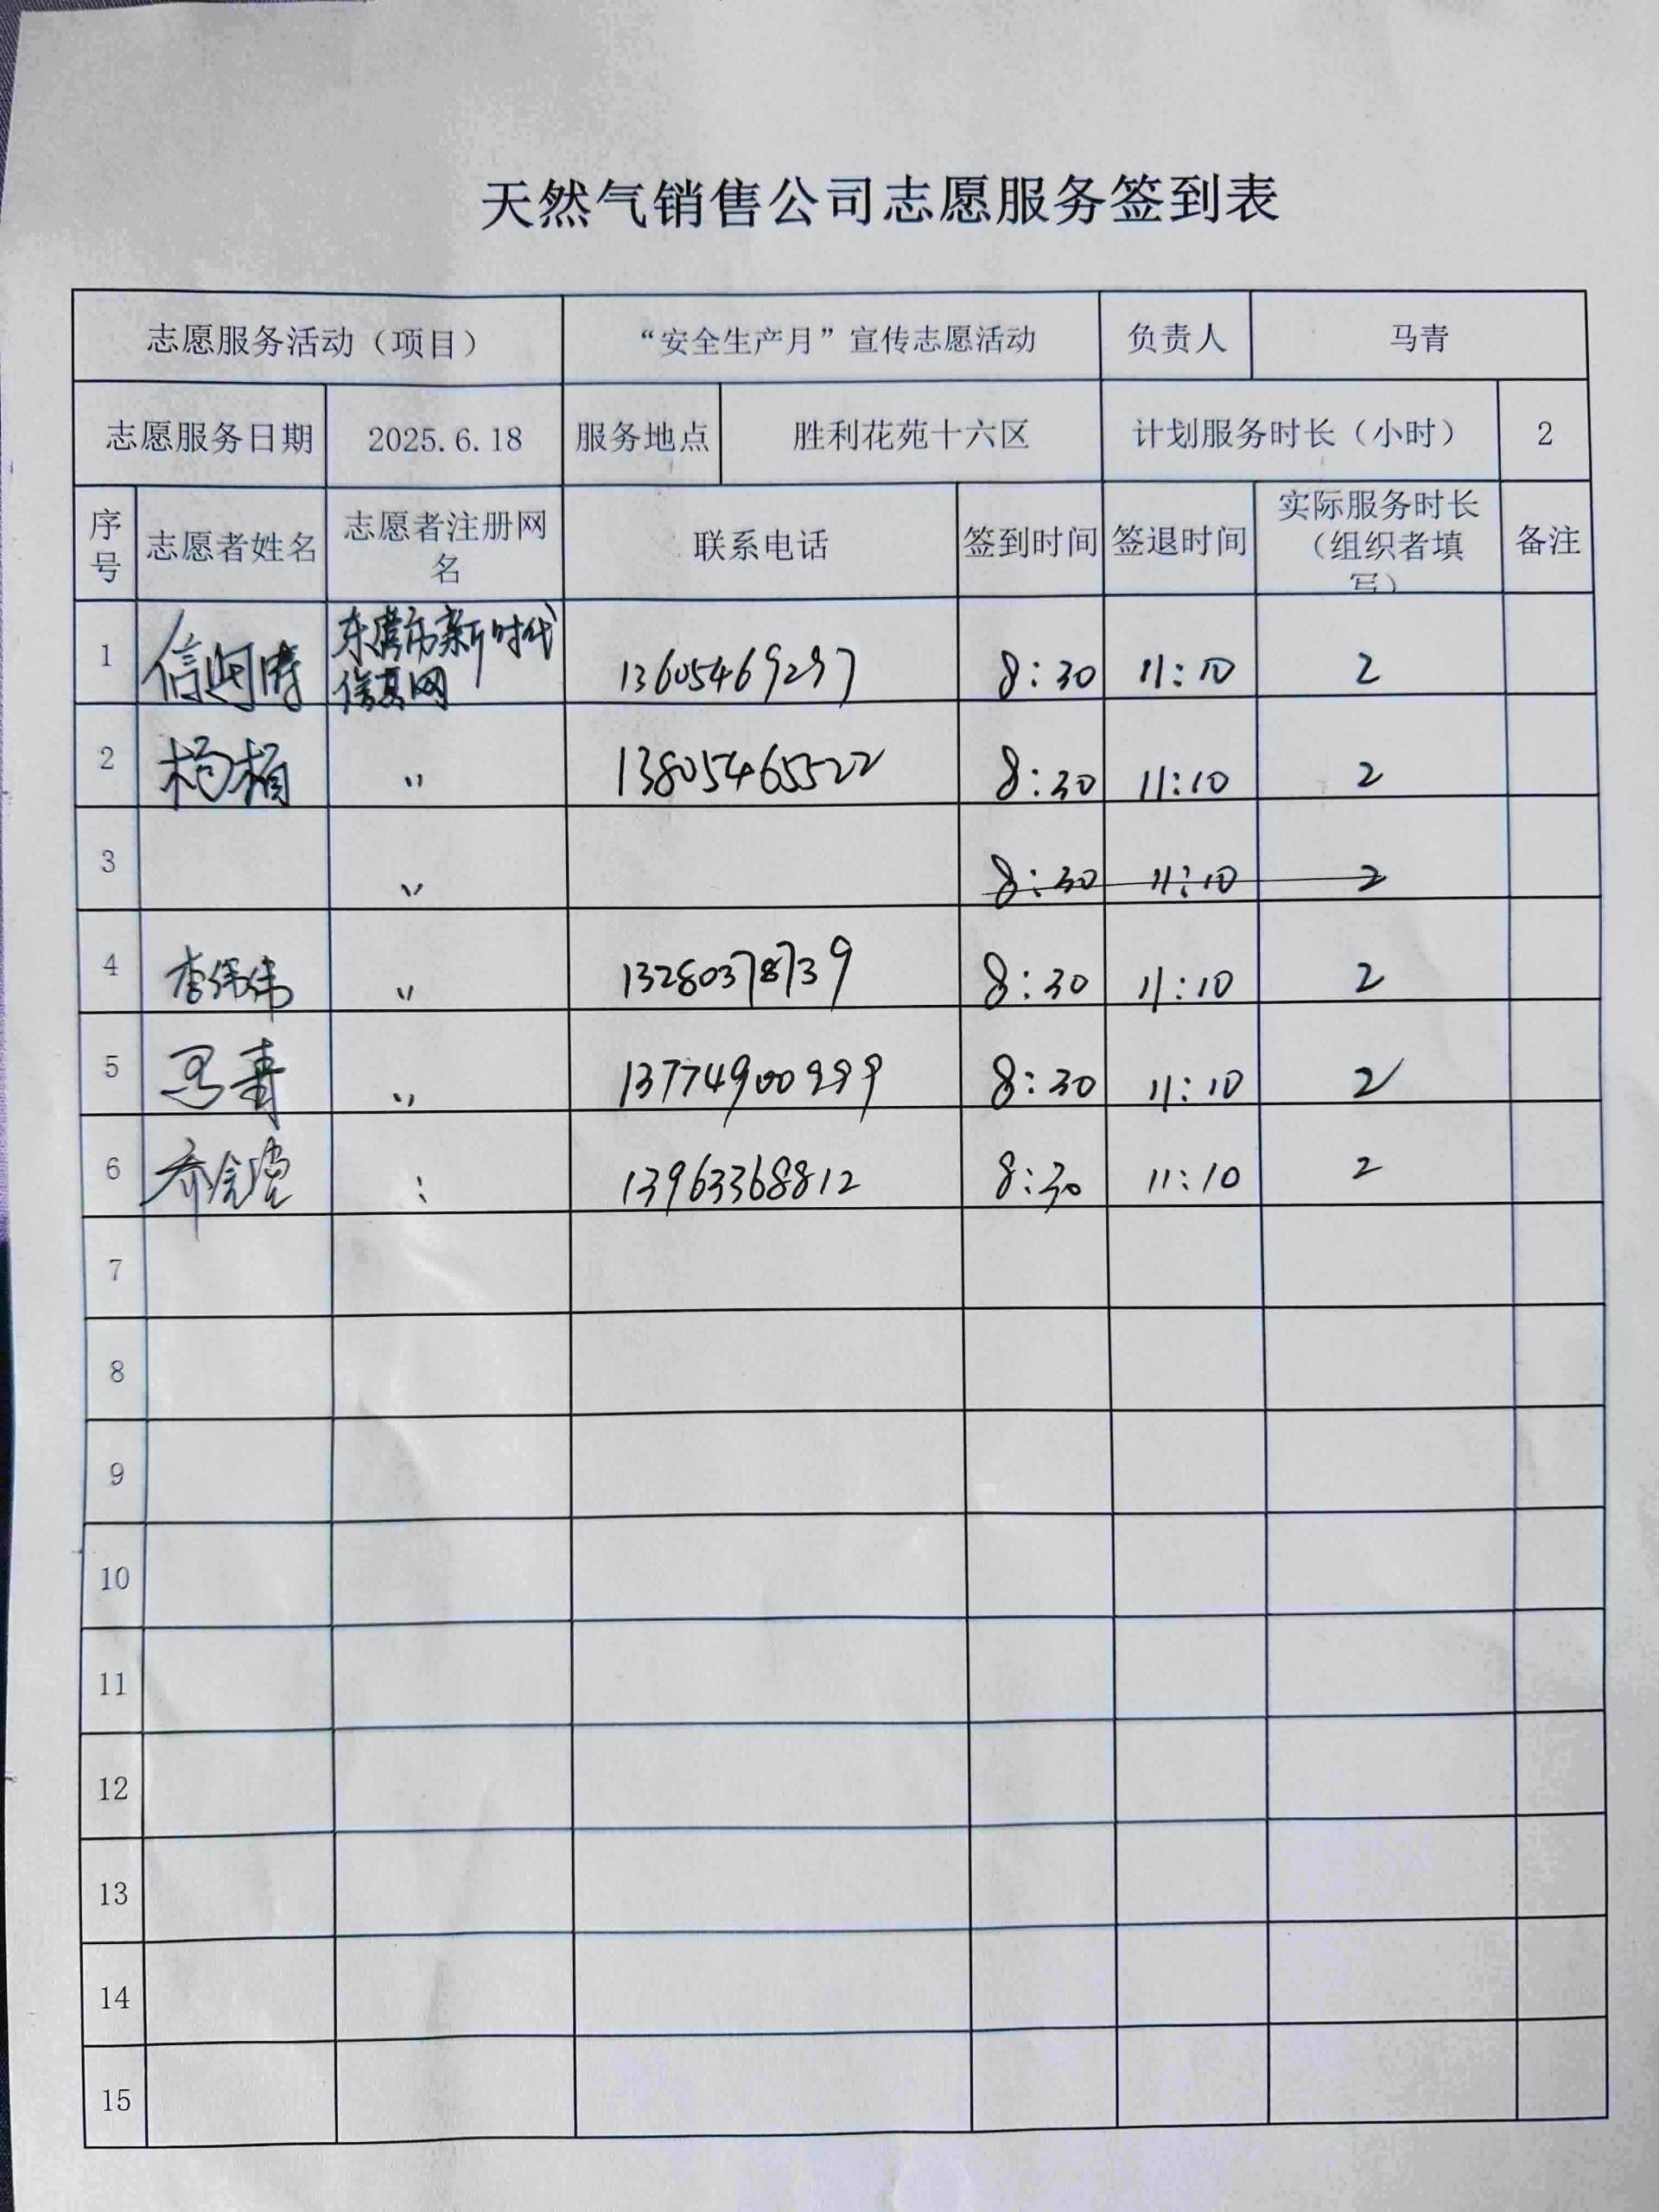 天然气销售公司志愿服务签到表
志愿服务活动（项目） “安全生产月”宣传志愿活动 负责人 马青
志愿服务日期 2025.6.18 服务地点 胜利花苑十六区 计划服务时长（小时） 2
序号 志愿者姓名 志愿者注册网名 联系电话 签到时间 签退时间 实际服务时长（组织者填写） 备注
1 东营市新时代信息网 13605469297 8:30 11:10 2
2 杨楠 〃 13805465522 8:30 11:10 2
3 〃 8:30 11:10 2
4 李伟伟 〃 13280378739 8:30 11:10 2
5 马青 〃 13774900999 8:30 11:10 2
6 〃 13963368812 8:30 11:10 2
7
8
9
10
11
12
13
14
15